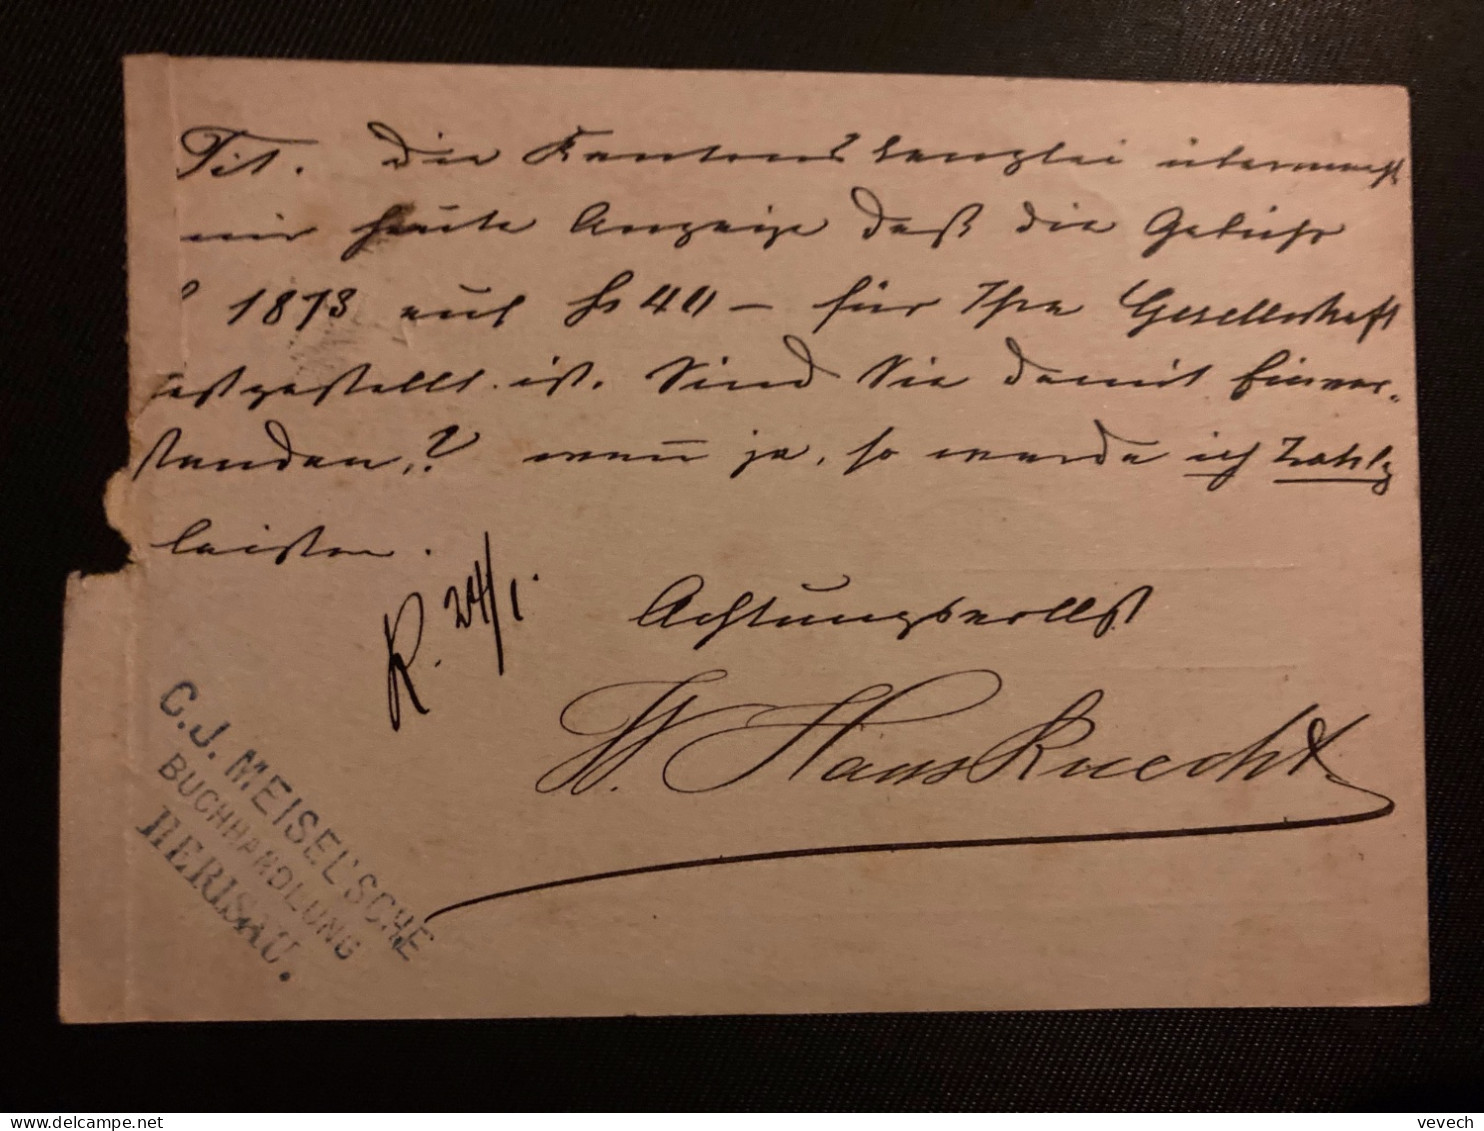 Tit. Die Kantonskanzlei übermacht
mir heute Anzeige daß die Gebühr
1873 auf fr 40 — für Ihre Gesellschaft
festgestellt ist. Sind Sie damit Einver-
standen,? wenn ja, so werde ich Zahlg
leisten.
R. 24/1.
Achtungsvollst
W. Hausknecht.
C. J. MEISEL'SCHE
BUCHHANDLUNG
HERISAU.
vevech